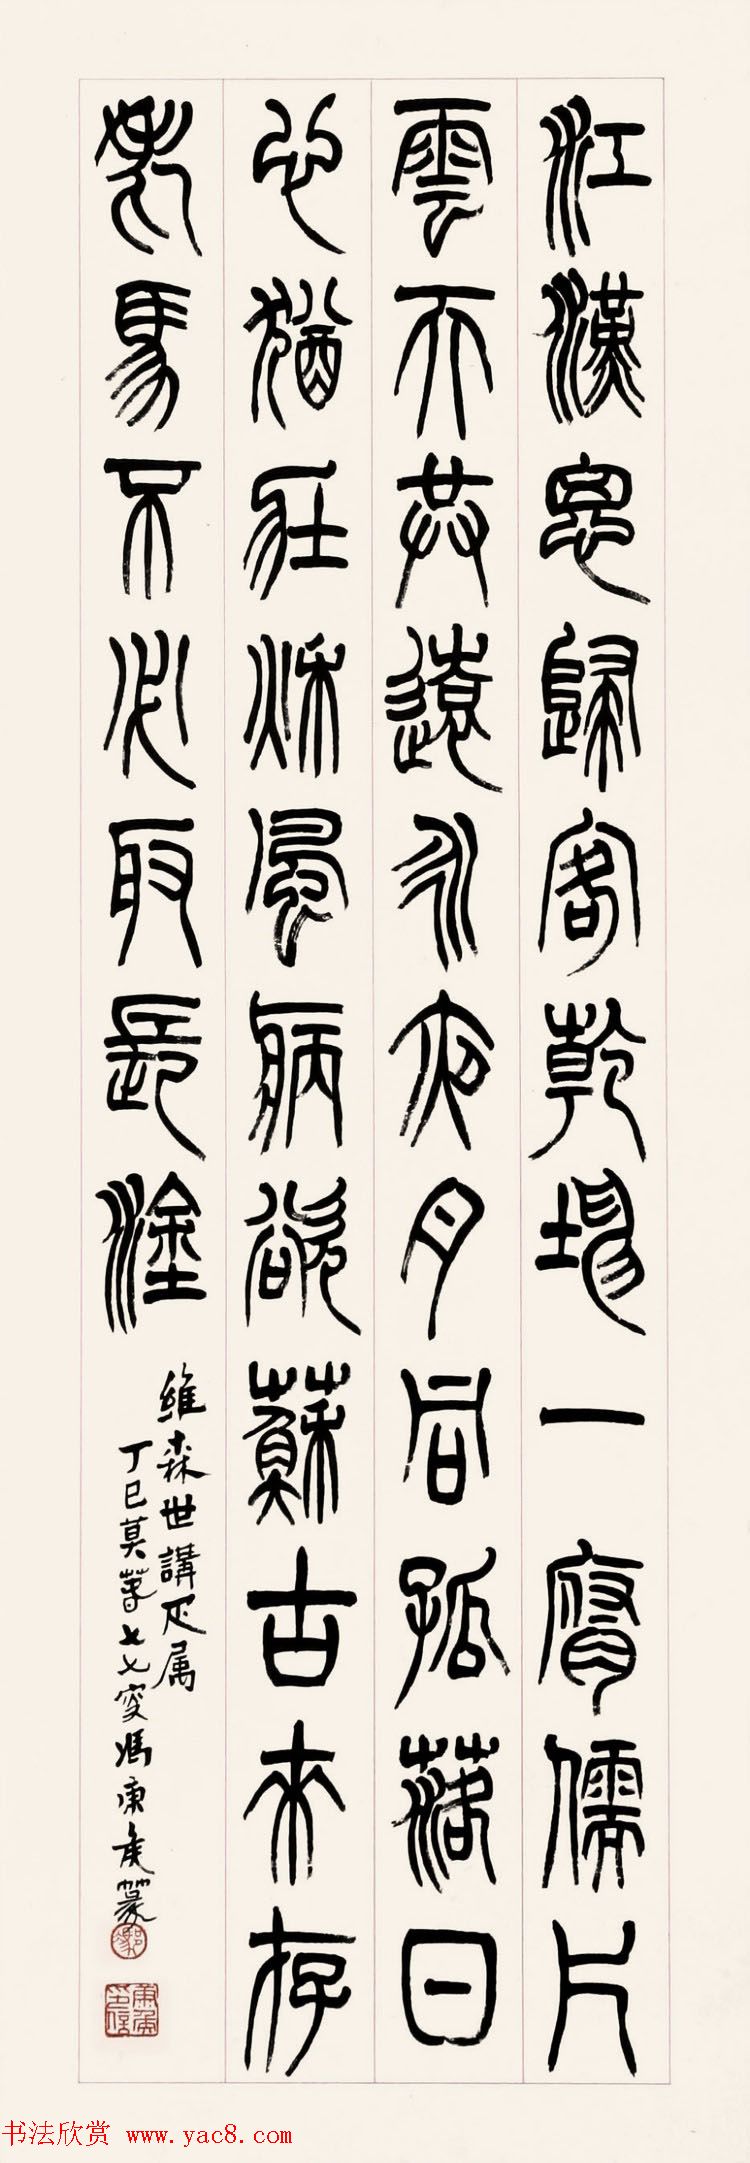 江漢思歸客乾坤一腐儒片
雲天共遠永夜月同孤落日
心猶壯秋風病欲蘇古來存
老馬不必取長塗
維森世講疋属
丁巳莫萅七七叟馮康矦篆
书法欣赏 www.yac8.com